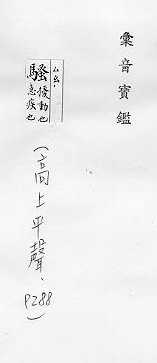 彙音寶鑑
ㄙㄠ
騷 擾動也
急疾也
（高上平聲、
P288）